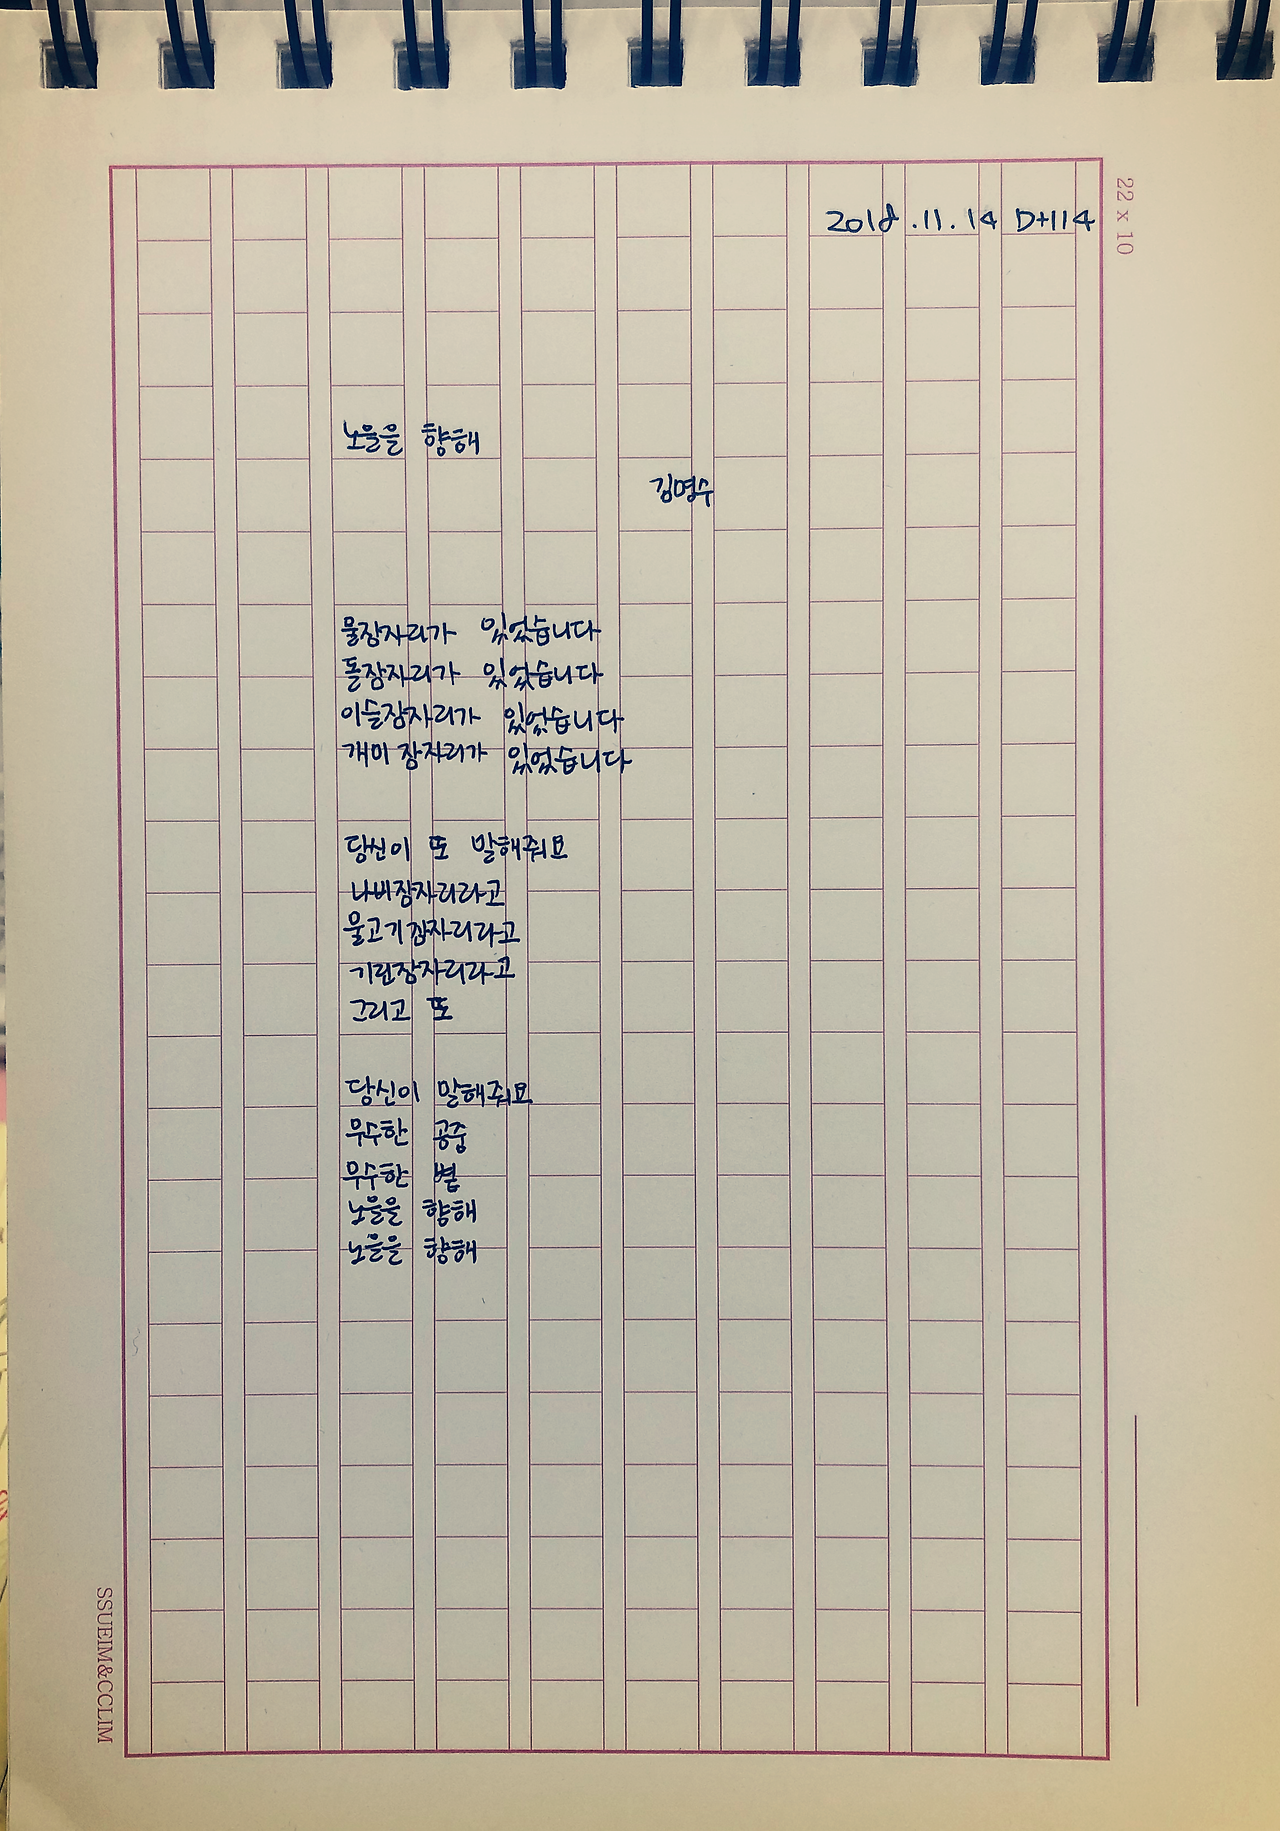 22 x 10
2018.11.14 D+114
노을을 향해
김명수
물잠자리가 있었습니다
돌잠자리가 있었습니다
이슬잠자리가 있었습니다
개미 잠자리가 있었습니다
당신이 또 말해줘요
나비잠자리라고
물고기잠자리라고
기린잠자리라고
그리고 또
당신이 말해줘요
무수한 공중
무수한 볕
노을을 향해
노을을 향해
SSUEIM&CCLIM